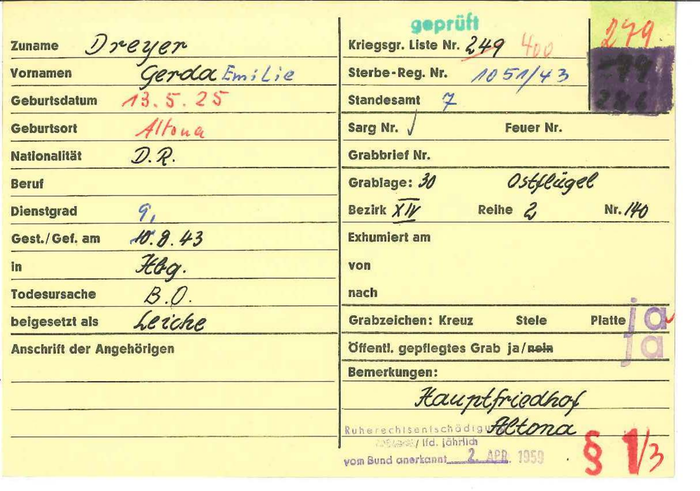 geprüft
Zuname Dreyer
Vornamen Gerda Emilie
Geburtsdatum 13.5.25
Geburtsort Altona
Nationalität D.R.
Beruf
Dienstgrad 9,
Gest./Gef. am 10.8.43
in Hbg.
Todesursache B.O.
beigesetzt als Leiche
Anschrift der Angehörigen
Kriegsgr. Liste Nr. 249 400
279
Sterbe-Reg. Nr. 1051/43
Standesamt 7
Sarg Nr. Feuer Nr.
Grabbrief Nr.
Grablage: 30 Ostflügel
Bezirk XIV Reihe 2 Nr. 140
Exhumiert am
von
nach
Grabzeichen: Kreuz Stele Platte ja
Öffentl. gepflegtes Grab ja/nein ja
Bemerkungen:
Hauptfriedhof
Altona
Ruherechtsentschädigu
/ lfd. jährlich
vom Bund anerkannt 2. APR. 1959
§ 1/3